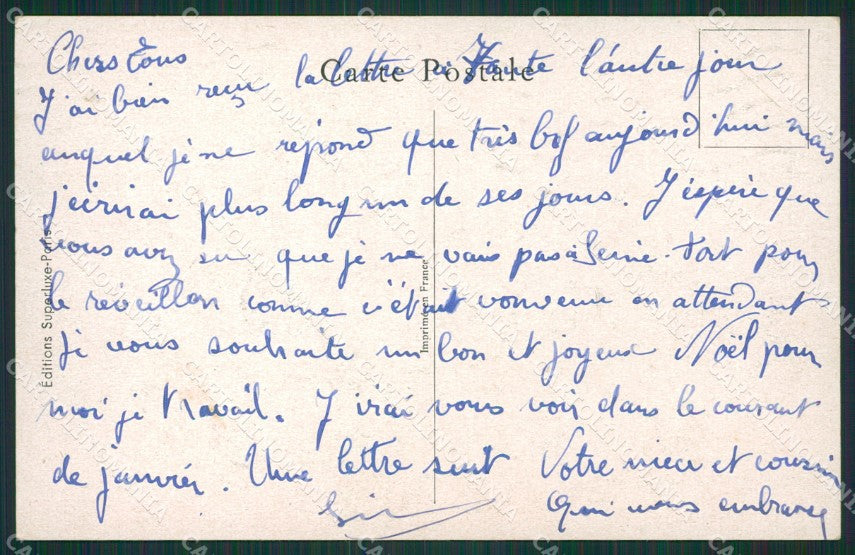 Carte Postale
Chers tous
J'ai bien reçu la lettre à Tante l'autre jour
auquel je ne répond que très bef aujourd'hui mais
j'écrirai plus long un de ses jours. J'éspère que
vous avez su que je ne vais pas à Seine-Port pour
le réveillon comme c'était convenu en attendant
Je vous souhaite un bon et joyeux Noël pour
moi je travail. J'irai vous voir dans le courant
de janvier. Une lettre suit Votre nièce et cousine
Qui vous embrasse
Éditions Superluxe-Paris
Imprimé en France
CARTOLINOMANIA